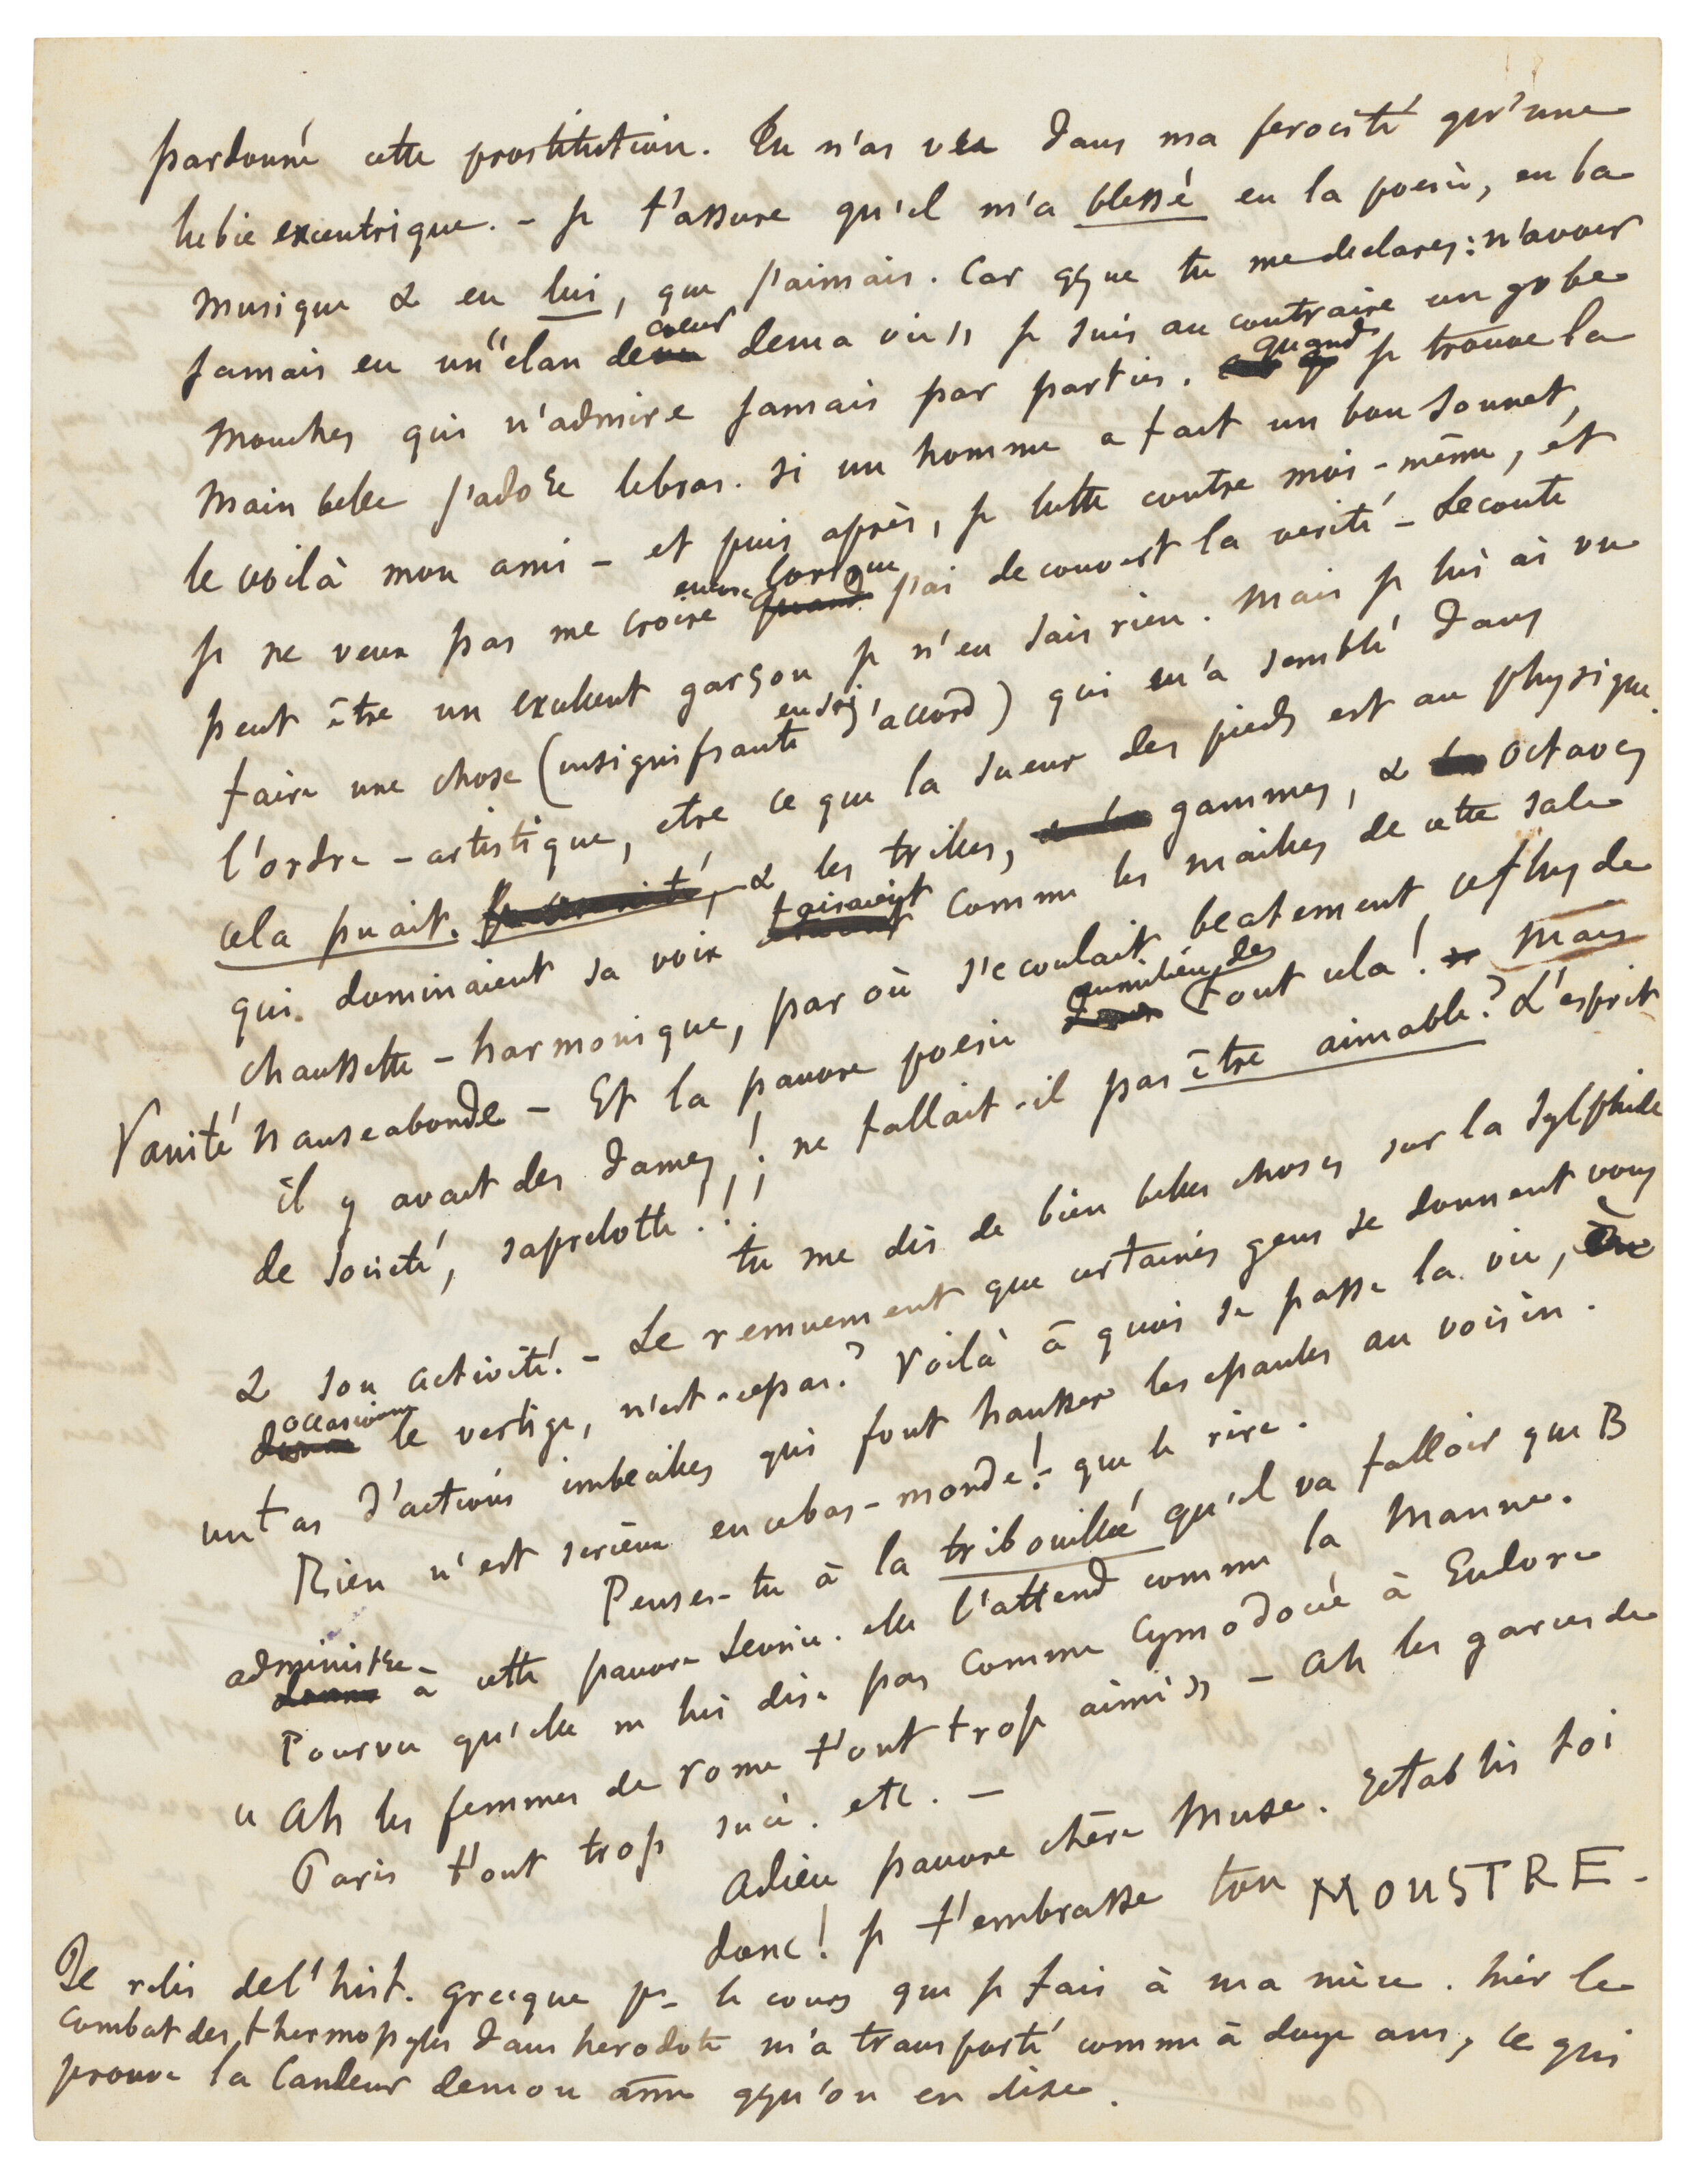 pardonné cette prostitution. Tu n'as vu dans ma ferocité qu'une
lubie excentrique. - je t'assure qu'il m'a blessé en la poesie, en la
musique & en lui, que j'aimais. Car qque tu me declares: n'avoir
jamais eu un "elan de coeur dema vie" je suis au contraire un gobe
mouches qui n'admire jamais par parties. quand je trouve la
main belle j'adore lebras. si un homme a fait un bon sonnet,
le voilà mon ami - et puis après, je lutte contre moi-même, et
je ne veux pas me croire encore lorsque j'ai decouvert la verité - Leconte
peut être un excellent garçon je n'en sais rien. mais je lui ai vu
faire une chose (insignifiante en soi, d'accord) qui m'a semblé dans
l'ordre - artistique, etre ce que la sueur des pieds est au physique.
cela puait. & les trilles, gammes, & octaves
qui dominaient sa voix faisaient comme les mailles de cette sale
chaussette - harmonique, par où s'ecoulait beatement ce flux de
Vanité nauseabonde - Et la pauvre poesie au milieu de tout cela! Mais
il y avait des dames! ne fallait-il pas être aimable? L'esprit
de société, saprelotte!!!
tu me dis de bien belles choses sur la sylphide
& son activité. - Le remuement que certaines gens se donnent vous
occasionne le vertige, n'est-cepas? Voilà à quoi se passe la vie, à
untas d'actions imbeciles qui font hausser les epaules au voisin.
Rien n'est serieux encebas-monde! - que le rire.
Penses-tu à la tribouillée qu'il va falloir que B
administre à cette pauvre Leonie. elle l'attend comme la Manne.
Pourvu qu'elle ne lui dise pas comme Cymodocée à Eudore
« Ah les femmes de rome t'ont trop aimé » - Ah les garces de
Paris t'ont trop sucé. etc. -
Adieu pauvre chère Muse. Establis toi
donc! je t'embrasse ton MONSTRE -
Je relis del'hist. grecque pr le cours que je fais à ma nièce. hier le
combat des thermopyles dans herodote m'a transporté comme à douze ans, ce qui
prouve la Candeur demon âme qqu'on en dise.